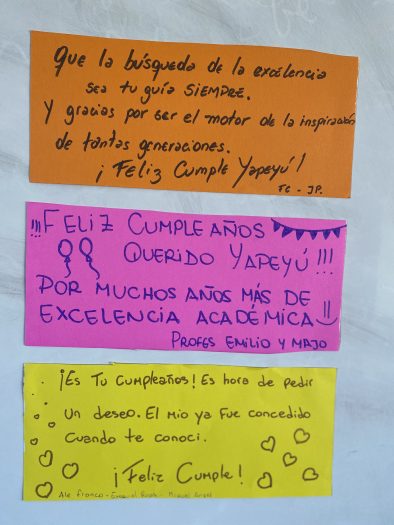 Que la búsqueda de la excelencia
sea tu guía SIEMPRE.
Y gracias por ser el motor de la inspiración
de tantas generaciones.
¡Feliz Cumple Yapeyú!
FC - JP.
¡¡¡FELIZ CUMPLEAÑOS
QUERIDO YAPEYÚ!!!
POR MUCHOS AÑOS MÁS DE
EXCELENCIA ACADÉMICA
PROFES EMILIO Y MAJO
¡Es Tu Cumpleaños! Es hora de pedir
un deseo. El mio ya fue concedido
cuando te conoci.
¡Feliz Cumple!
Ale Franco -